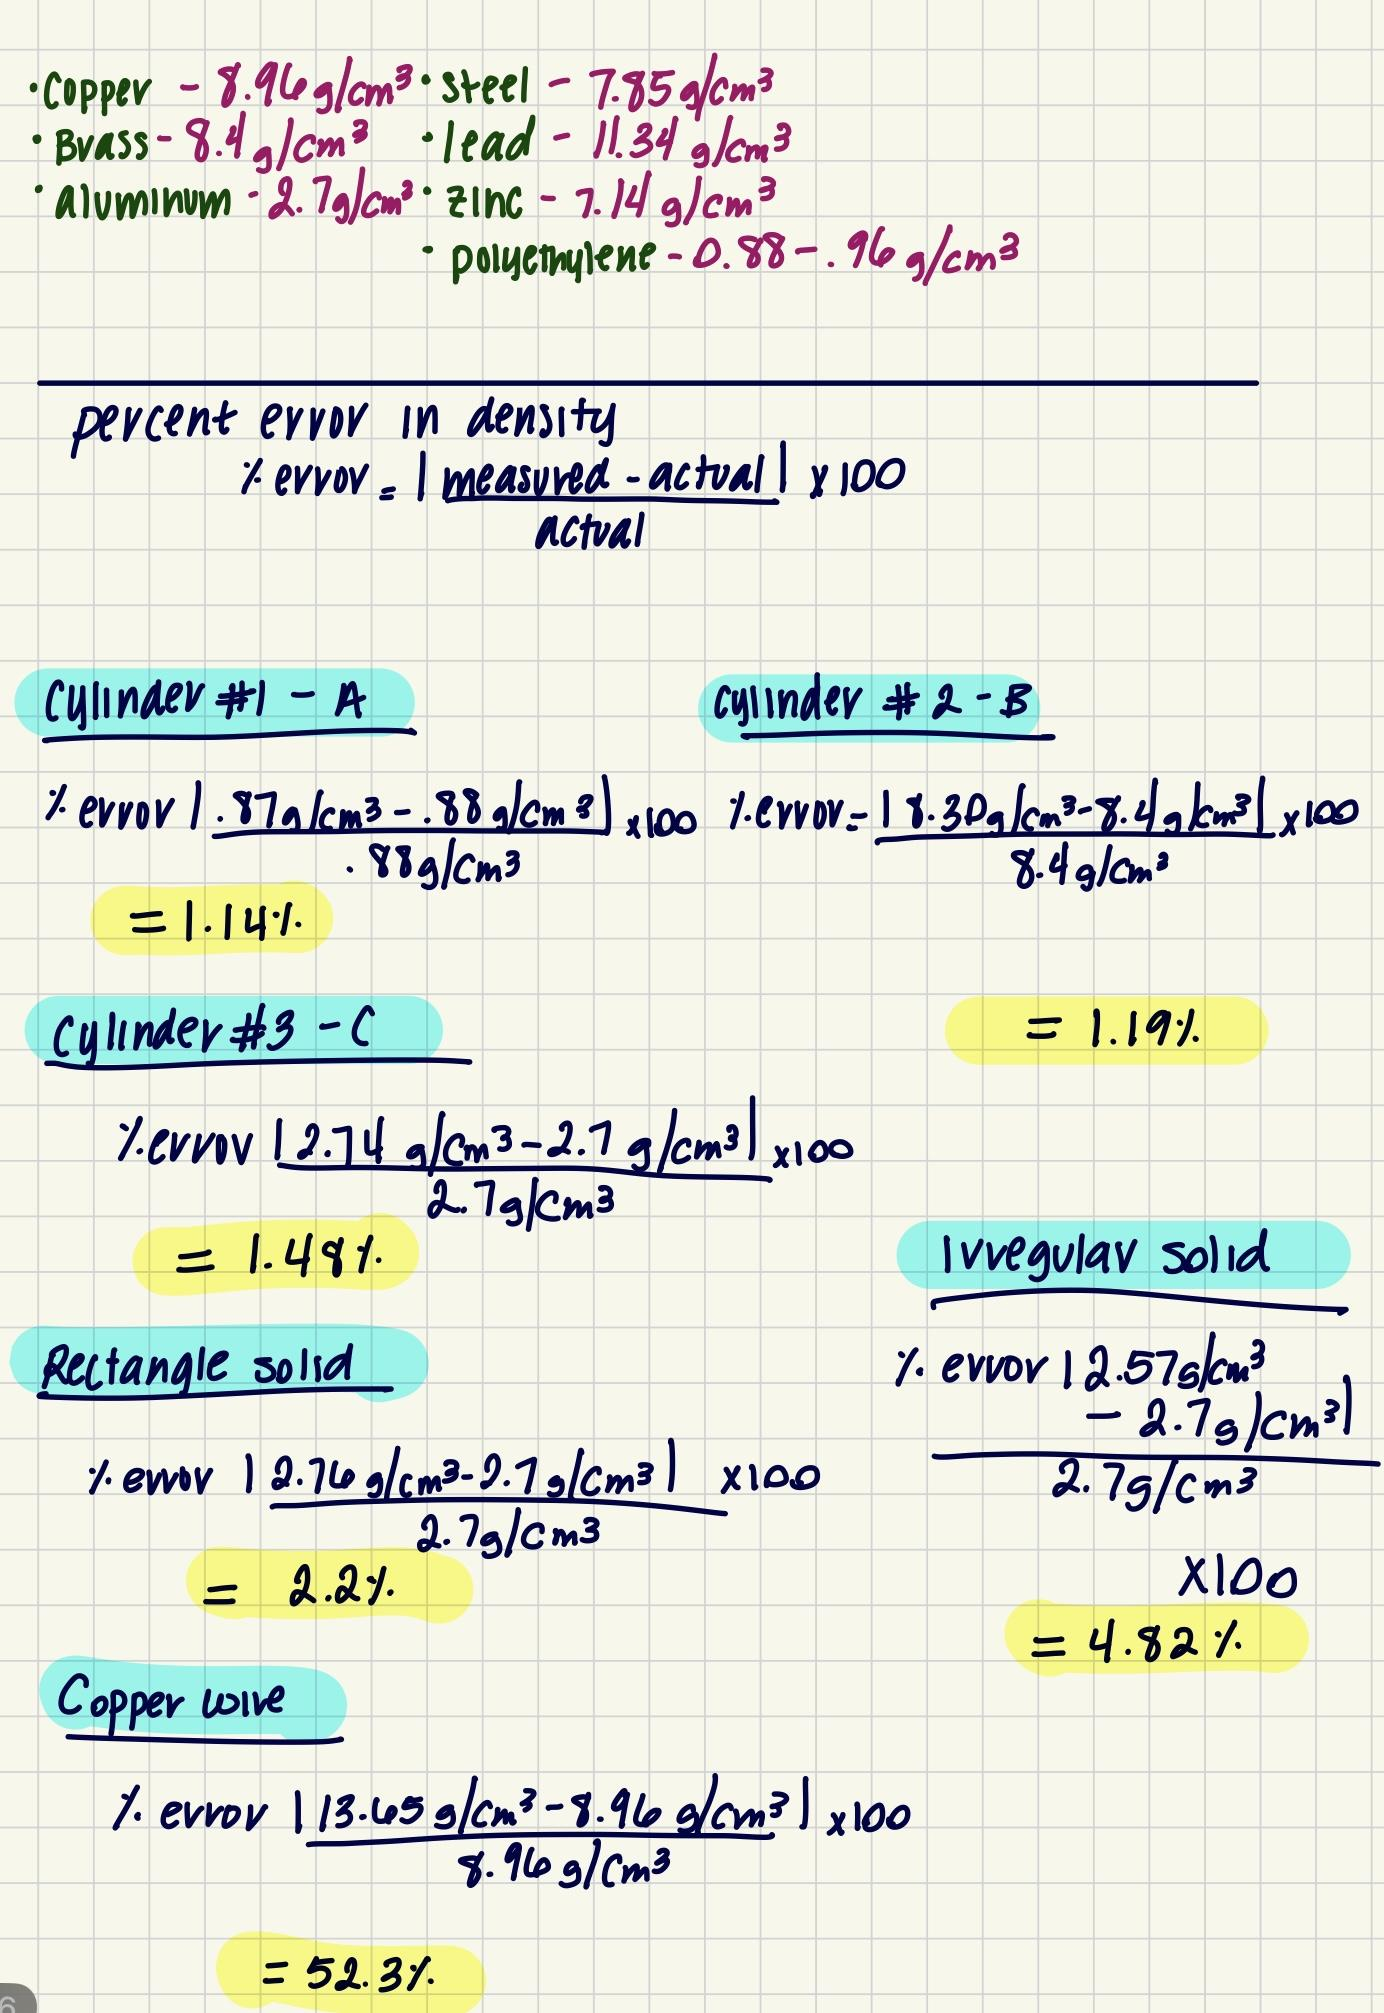 · Copper - 8.96 g/cm³ · steel - 7.85 g/cm³
· Brass - 8.4 g/cm³ · lead - 11.34 g/cm³
· aluminum - 2.7g/cm³ · zinc - 7.14 g/cm³
· polyethylene - 0.88 - .96 g/cm³
percent error in density
% error = | measured - actual | x 100
actual
Cylinder #1 - A
% error | .87g/cm³ - .88 g/cm³ | x100
.88g/cm³
= 1.14%
cylinder # 2 - B
% error = | 8.30g/cm³ - 8.4g/cm³ | x100
8.4g/cm³
= 1.19%
Cylinder #3 - C
% error | 2.74 g/cm³ - 2.7 g/cm³ | x100
2.7g/cm³
= 1.48%
Rectangle solid
% error | 2.76 g/cm³ - 2.7g/cm³ | x100
2.7g/cm³
= 2.2%
Irregular solid
% error | 2.57g/cm³
- 2.7g/cm³ |
2.7g/cm³
x100
= 4.82 %
Copper wire
% error | 13.65 g/cm³ - 8.96 g/cm³ | x100
8.96 g/cm³
= 52.3%
6